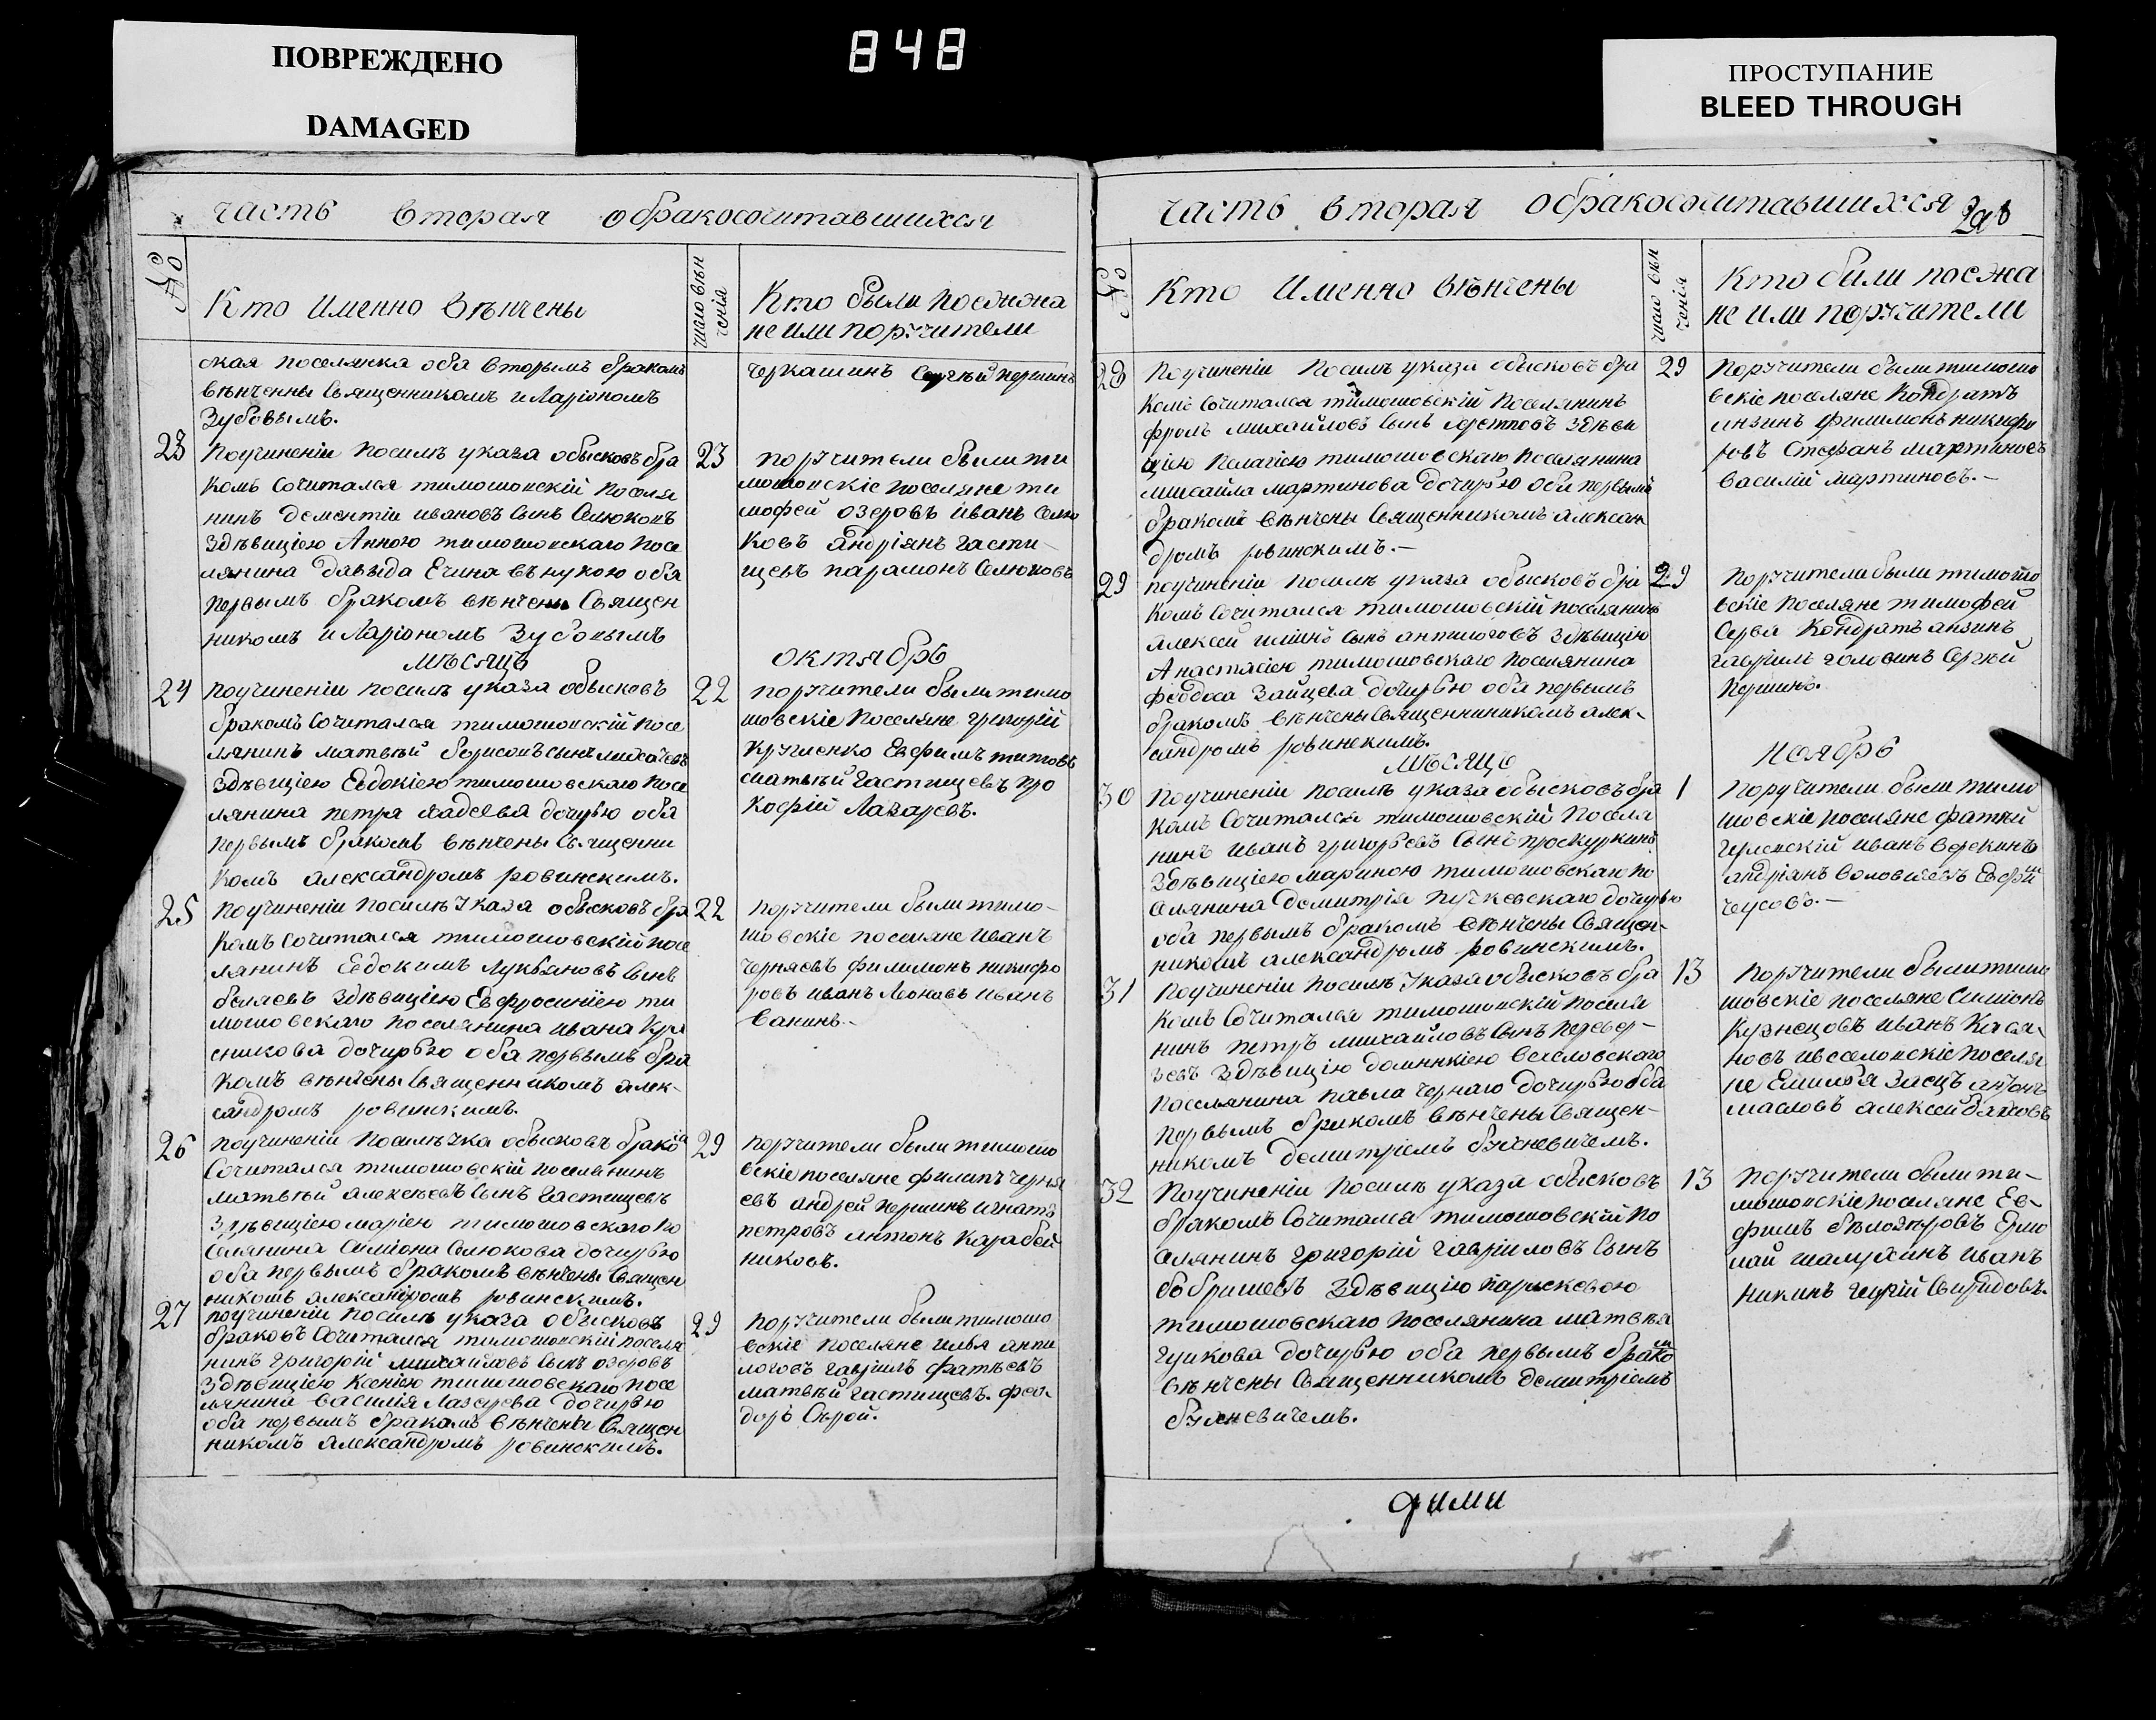 ПОВРЕЖДЕНО
DAMAGED
848
ПРОСТУПАНИЕ
BLEED THROUGH
часть вторая обракосочитавшихся
№
Кто Именно Вѣнчены
число вѣн
ченія
Кто были поезжа
не или поручители
ская поселянка оба вторымъ бракомъ
вѣнченны Священникомъ иларіономъ
Зубовымъ.
черкашинъ Сергѣй першинъ
23
Поучиненіи посилѣ указа обысковъ бра
комъ Сочитался тимошовскій поселя
нинъ дементіи ивановъ Сынъ Селюковъ
Здѣвицією Анною тимошовскаго посе
лянина давыда Ечина внукою оба
первымъ бракомъ вѣнчены Священ
никомъ иларіономъ Зубовымъ
23
поручители были ти
мошовскіе поселяне ти
мофей озеровъ иванъ Селю
ковъ андріянъ части
щевъ парамонъ Селюковъ
мѣсяцъ
октябрь
24
поучиненіи посилѣ указа обысковъ
бракомъ Сочитался тимошовскій посе
лянинъ матвѣй борисовъ сынъ михачевъ
Здѣвицією Евдокією тимошовскаго посе
лянина петра фадеева дочирью оба
первымъ бракомъ вѣнчены Священни
комъ александромъ ровинскимъ.
22
поручители были тимо
шовскіе поселяне григорій
Кругленко Евфимъ титовъ
матвѣй частищевъ про
кофій Лазаревъ.
25
Поучиненіи посилѣ Указа обысковъ бра
комъ Сочитался тимошовскій посе
лянинъ Евдокимъ Лукьяновъ Сынъ
беляевъ Здѣвицією Евфросинією ти
мошовскаго поселянина ивана Кра
сникова дочирью оба первымъ бра
комъ вѣнчены Священникомъ алек-
сандромъ ровинскимъ.
22
поручители были тимо-
шовскіе поселяне иванъ
черняевъ филимонъ никифо
ровъ иванъ Леоновъ иванъ
ванинъ.-
26
поучиненіи посилѣ ука обысковъ брако
Сочитался тимошовскій поселянинъ
матвѣй алексѣевъ Сынъ частищевъ
Здѣвицією марією тимошовскаго по
Селянина Симіона Селюкова дочирью
оба первымъ бракомъ вѣнчены Священ
никомъ александромъ ровинскимъ.
29
поручители были тимошо
вскіе поселяне филипъ черня
евъ андрей першинъ игнатъ
петровъ антонъ Карабей
никовъ.
27
поучиненіи посилѣ указа обысковъ
браковъ Сочитался тимошовскій поселя
нинъ григорій михайловъ Сынъ озеровъ
Здѣвицією Ксенією тимошовскаго посе
лянина василія Лазарева дочирью
оба первымъ бракомъ вѣнчены Священ
никомъ александромъ ровинскимъ.
29
поручители были тимошо
вскіе поселяне илья анти
логовъ гавріилъ фатѣевъ
матвѣй частищевъ. фео-
доръ Сѣрой.
часть вторая обракосочитавшихся
№
Кто Именно вѣнчены
число вѣн
ченія
Кто были поезжа
не или поручители
28
Поучиненіи Посилѣ указа обысковъ бра
комъ Сочитался тимошовскій поселянинъ
фролъ михайловъ Сынъ Здѣви
цією Пелагією тимошовскаго поселянина
мисаила мартинова дочирью оба первымъ
бракомъ вѣнчены Священникомъ алексан
дромъ ровинскимъ.-
29
Поручители были тимошо
вскіе поселяне Кондратъ
анзинъ филимонъ никифо
ровъ Стефанъ мартиновъ
василій мартиновъ.-
29
поучиненіи посилѣ указа обысковъ бра
комъ Сочитался тимошовскій поселянинъ
алексей илїинъ Сынъ антилоговъ Здѣвицію
Анастасією тимошовскаго поселянина
феодоса Зайцева дочирью оба первымъ
бракомъ вѣнчены Священниникомъ алек-
сандромъ ровинскимъ.
29
поручители были тимошо
вскіе поселяне тимофей
Серая Кондратъ анзинъ
гаврилъ головинъ Сергѣй
першинъ.
мѣсяцъ
ноябрь
30
Поучиненіи посилѣ указа обысковъ бра
комъ Сочитался тимошовскій Поселя
нинъ иванъ григорьевъ Сынъ проскуринъ
Здѣвицією мариною тимошовскаго по
Селянина демитрія пучковскаго дочирью
оба первымъ бракомъ вѣнчены Священ-
никомъ александромъ ровинскимъ.
1
Поручители были тимо
шовскіе поселяне фатѣй
иванъ верекинъ
андріянъ
чусовъ.-
31
Поучиненіи посилѣ Указа обысковъ бра
комъ Сочитался тимошовскій поселя
нинъ петръ михайловъ Сынъ перевер-
зевъ Здѣвицію домникією веселовскаго
поселянина павла чернаго дочирью оба
первымъ бракомъ вѣнчены Священ-
никомъ демитріемъ бучневичемъ.
13
поручители были тимо
шовскіе поселяне Симіонъ
Кузнецовъ иванъ Касья-
новъ ивеселовскіе поселя
не Емилья Заецъ антонъ
масловъ алексей быковъ
32
Поучиненіи посилѣ указа обысковъ
бракомъ Сочитался тимошовскій по
Селянинъ григорій гавріиловъ Сынъ
бобришевъ Здѣвицію параскевою
тимошовскаго поселянина матвѣя
гулкова дочирью оба первымъ брако
вѣнчены Священникомъ демитріемъ
бучневичемъ.
13
поручители были ти-
мошовскіе поселяне Ев-
фимъ Ермо
лай шалухинъ иванъ
никинъ Свиридовъ.